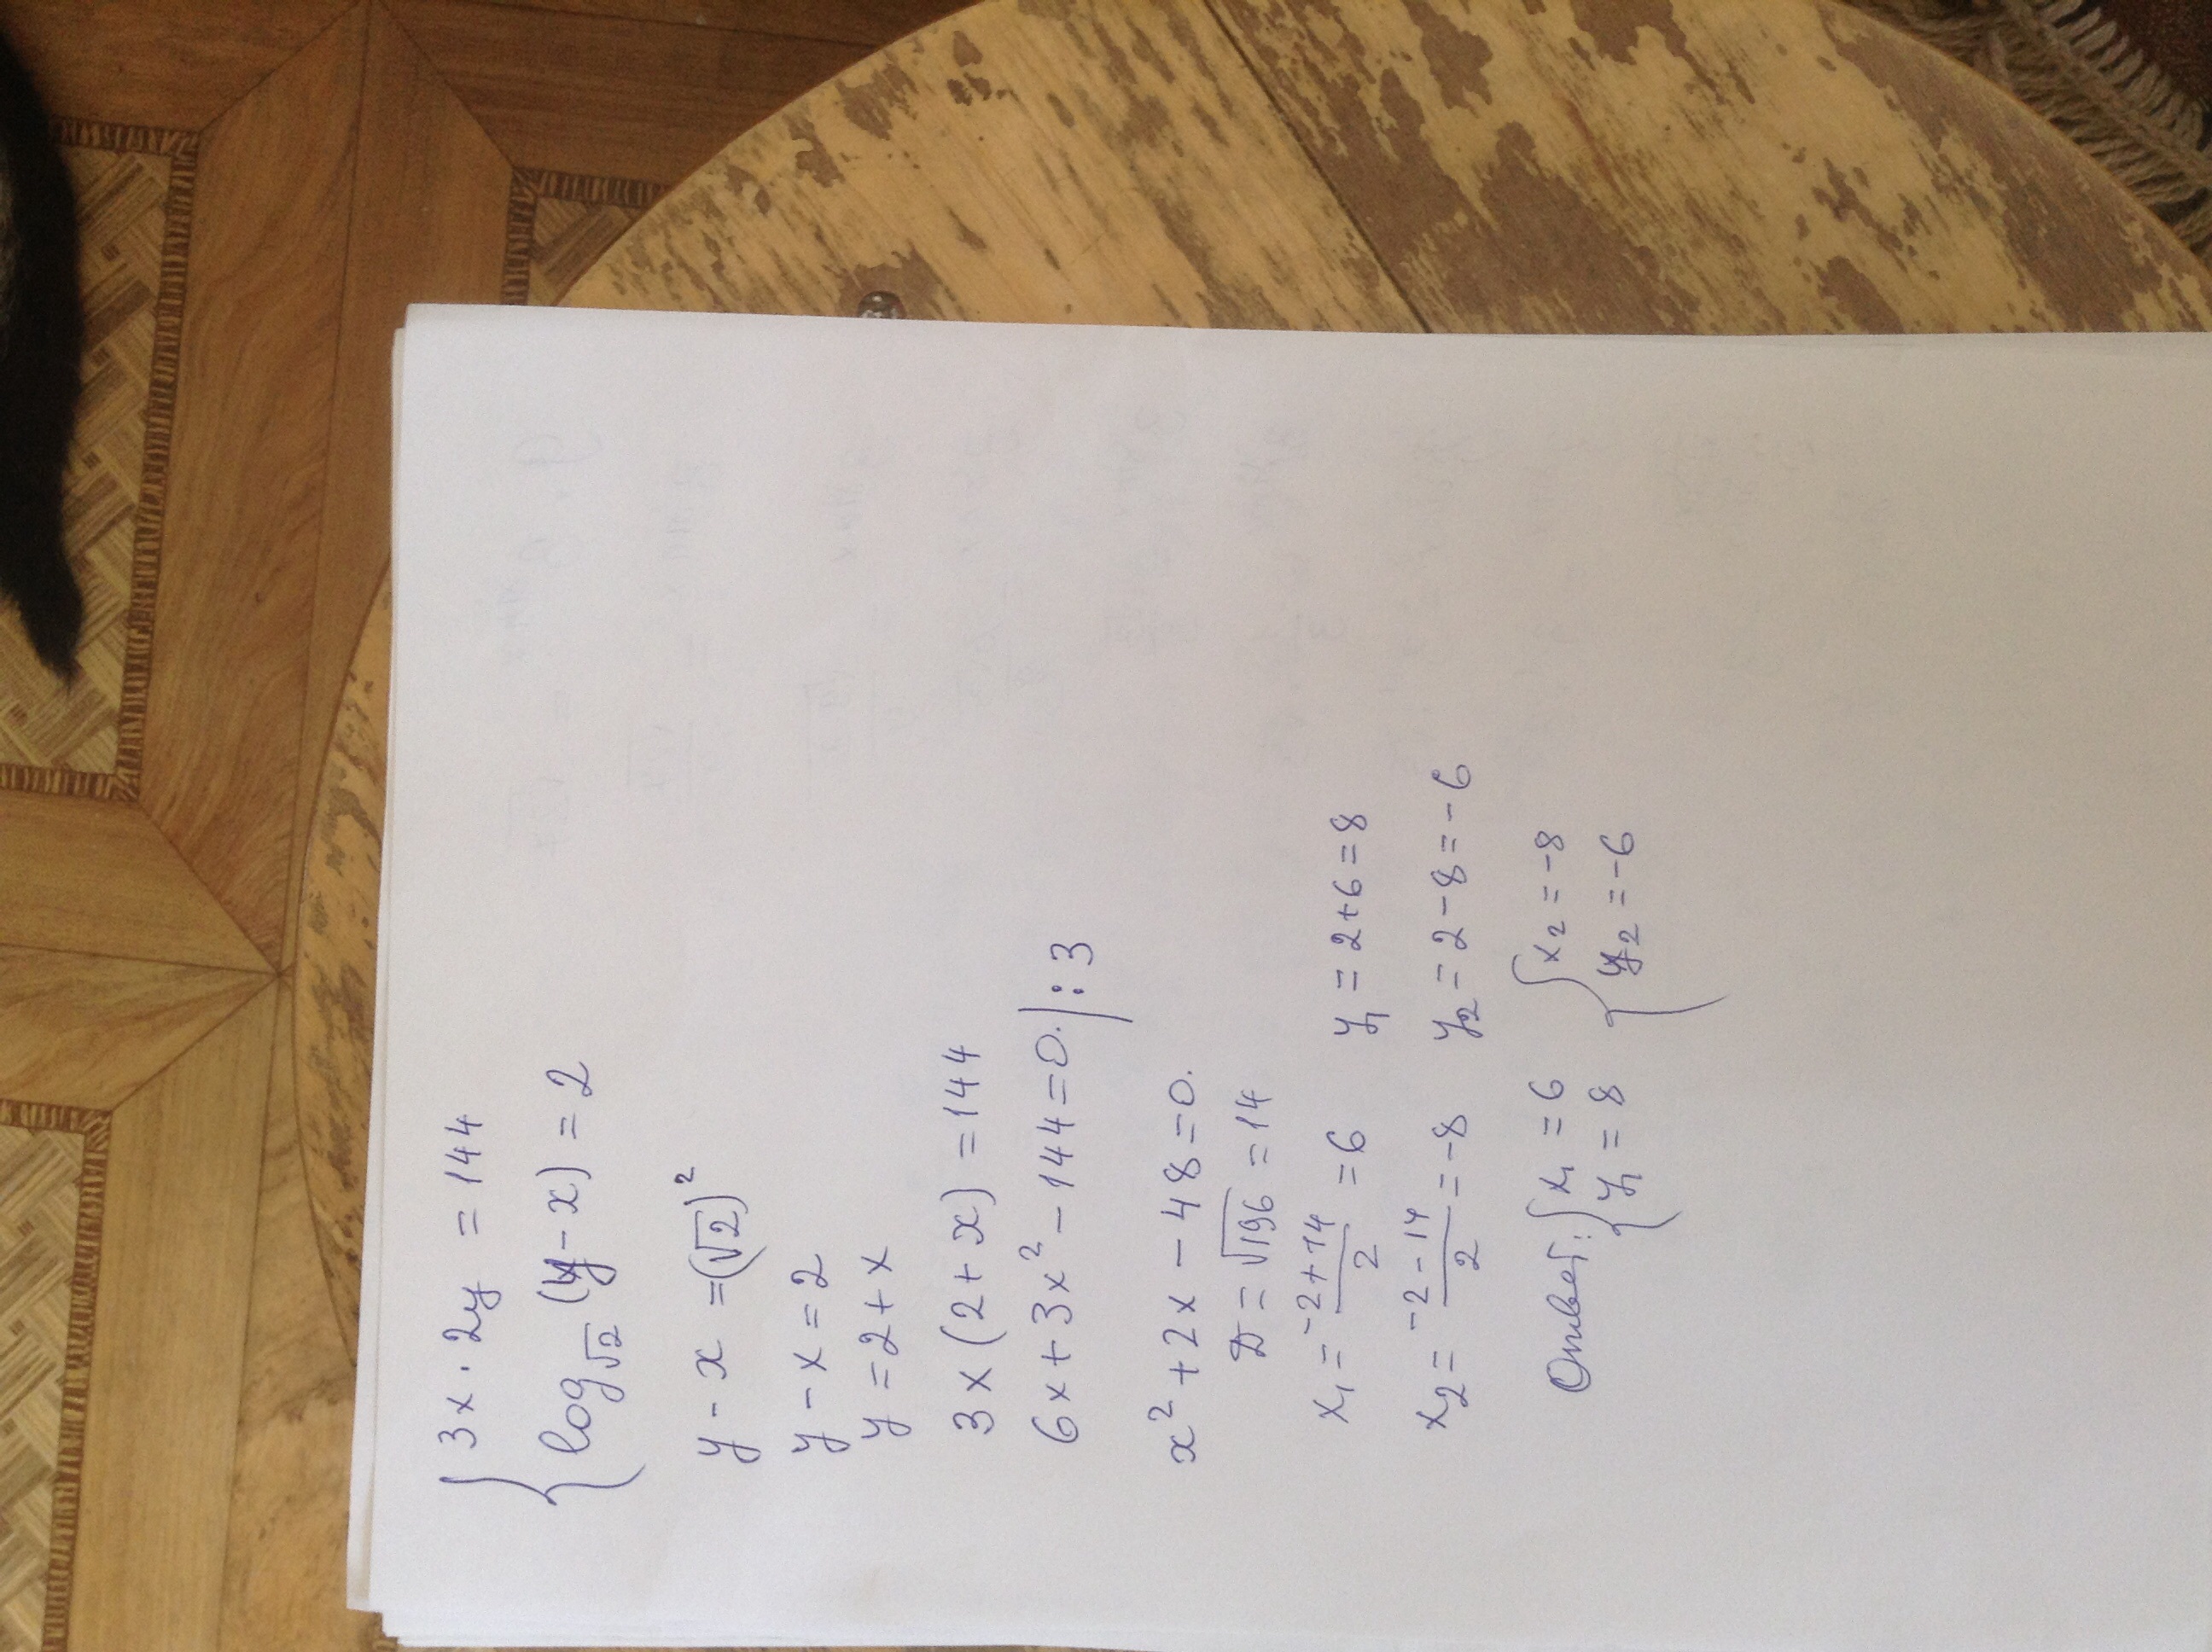 3x · 2y = 144
log√2 (y - x) = 2
y - x = (√2)²
y - x = 2
y = 2 + x
3x (2 + x) = 144
6x + 3x² - 144 = 0. | : 3
x² + 2x - 48 = 0.
D = √196 = 14
x₁ = (-2 + 14)/2 = 6 y₁ = 2 + 6 = 8
x₂ = (-2 - 14)/2 = -8 y₂ = 2 - 8 = -6
Ответ: { x₁ = 6 { x₂ = -8
y₁ = 8 y₂ = -6